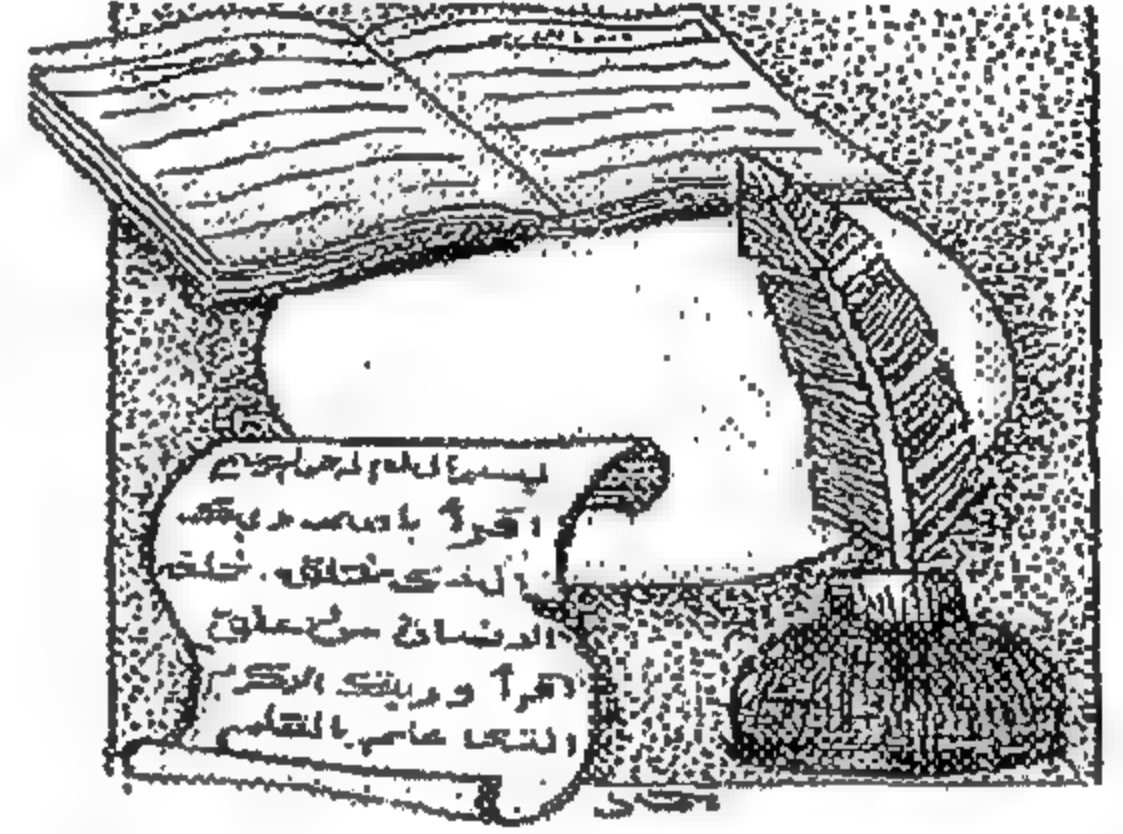 بسم الله الرحمن الرحيم
اقرأ باسم ربك
الذى خلق . خلق
الانسان من علق
اقرأ و ربك الاكرم
الذى علم بالقلم